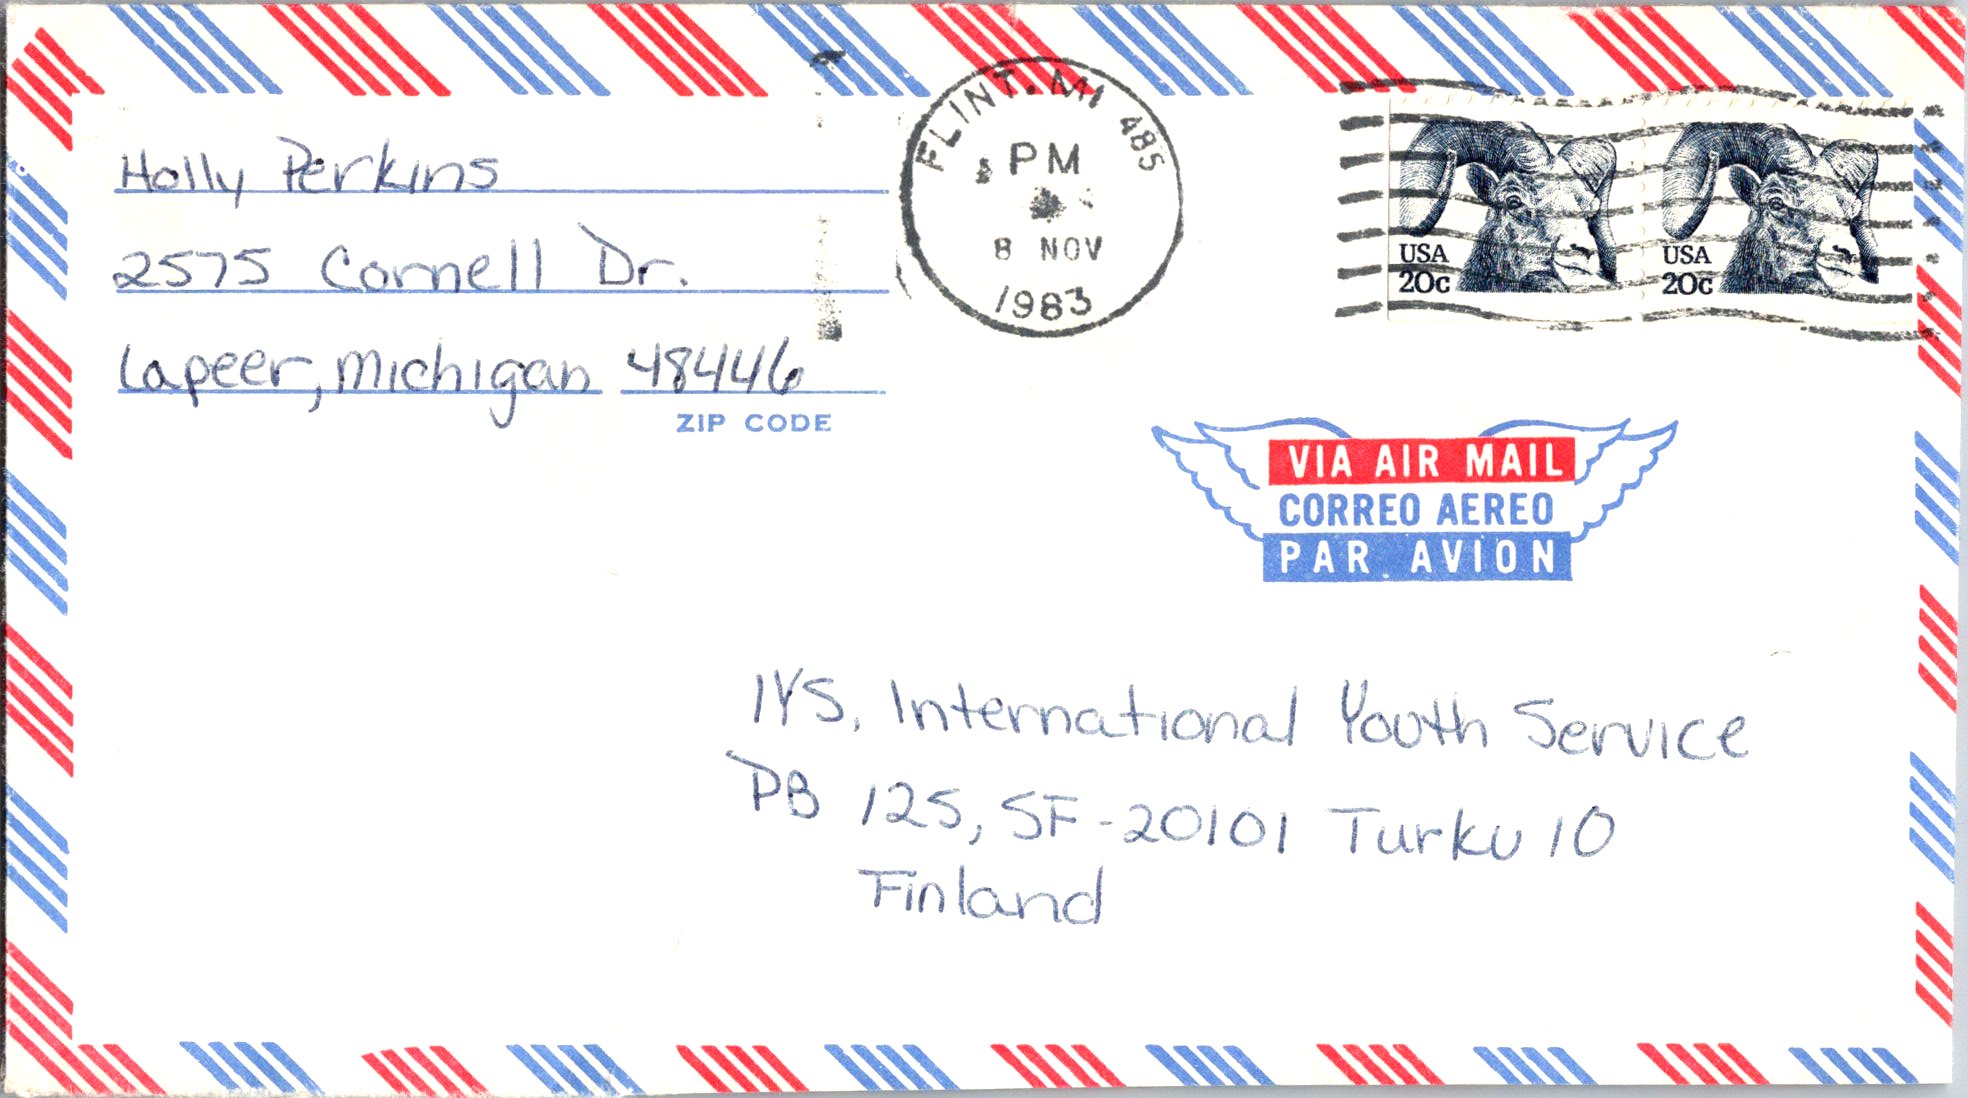 Holly Perkins
2575 Cornell Dr.
Lapeer, Michigan 48446
ZIP CODE
FLINT. MI 485
PM
8 NOV
1983
USA
20c
USA
20c
VIA AIR MAIL
CORREO AEREO
PAR AVION
IYS, International Youth Service
PB 125, SF-20101 Turku 10
Finland